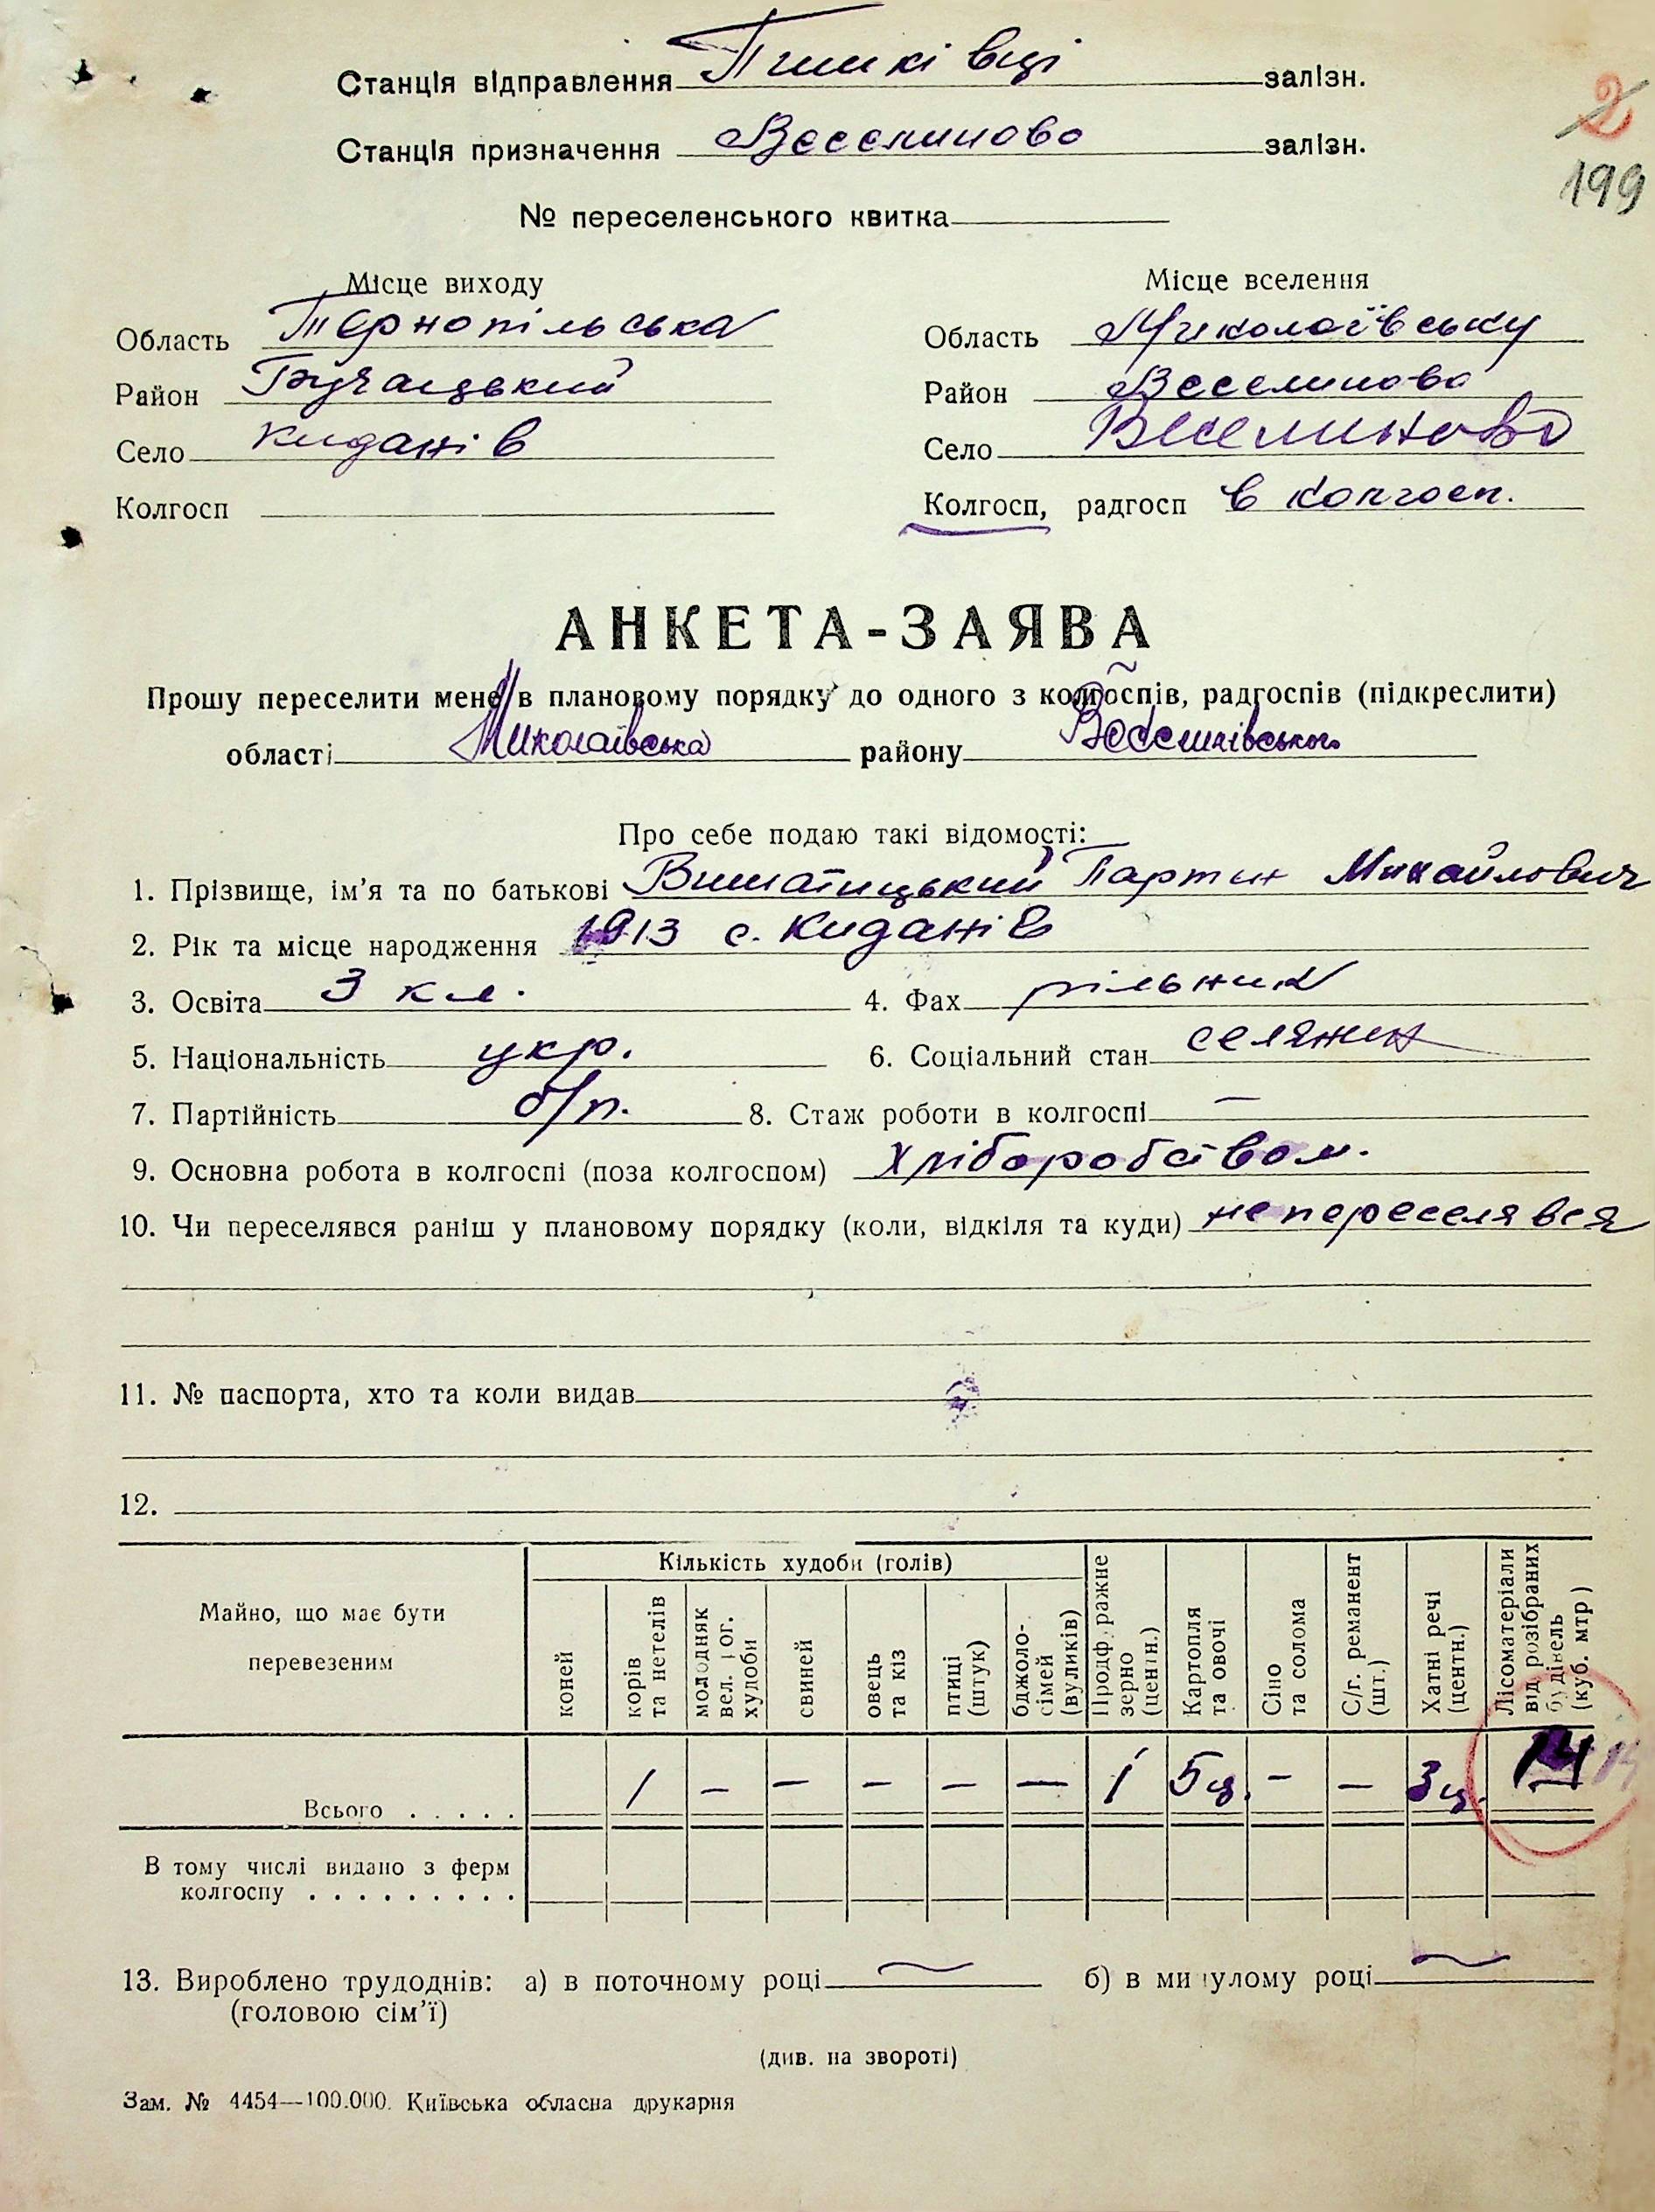 Станція відправлення Пишківці залізн.
Станція призначення Веселиново залізн.
2
199
№ переселенського квитка
Місце виходу
Область Тернопільська
Район Бучацький
Село Киданів
Колгосп
Місце вселення
Область Миколаївську
Район Веселиново
Село Веселиново
Колгосп, радгосп в колгосп.
АНКЕТА-ЗАЯВА
Прошу переселити мене в плановому порядку до одного з колгоспів, радгоспів (підкреслити)
області Миколаївська району Веселинівського
Про себе подаю такі відомості:
1. Прізвище, ім'я та по батькові Вишатицький Мартин Михайлович
2. Рік та місце народження 1913 с. Киданів
3. Освіта 3 кл. 4. Фах рільник
5. Національність укр. 6. Соціальний стан селянин
7. Партійність б/п. 8. Стаж роботи в колгоспі —
9. Основна робота в колгоспі (поза колгоспом) Хліборобством.
10. Чи переселявся раніш у плановому порядку (коли, відкіля та куди) не переселявся
11. № паспорта, хто та коли видав
12.
Майно, що має бути перевезеним
Кількість худоби (голів)
коней
корів та нетелів
молодняк вел. рог. худоби
свиней
овець та кіз
птиці (штук)
бджоло-сімей (вуликів)
Продфуражне зерно (центн.)
Картопля та овочі
Сіно та солома
С/г. реманент (шт.)
Хатні речі (центн.)
Лісоматеріали від розібраних будінель (куб. мтр)
Всього . . . . . 1 — — — — — 1 5ц. — — 3ц. 14
В тому числі видано з ферм
колгоспу . . . . . . . . .
13. Вироблено трудоднів: а) в поточному році — б) в минулому році —
(головою сім'ї)
(див. на звороті)
Зам. № 4454—100.000. Київська обласна друкарня